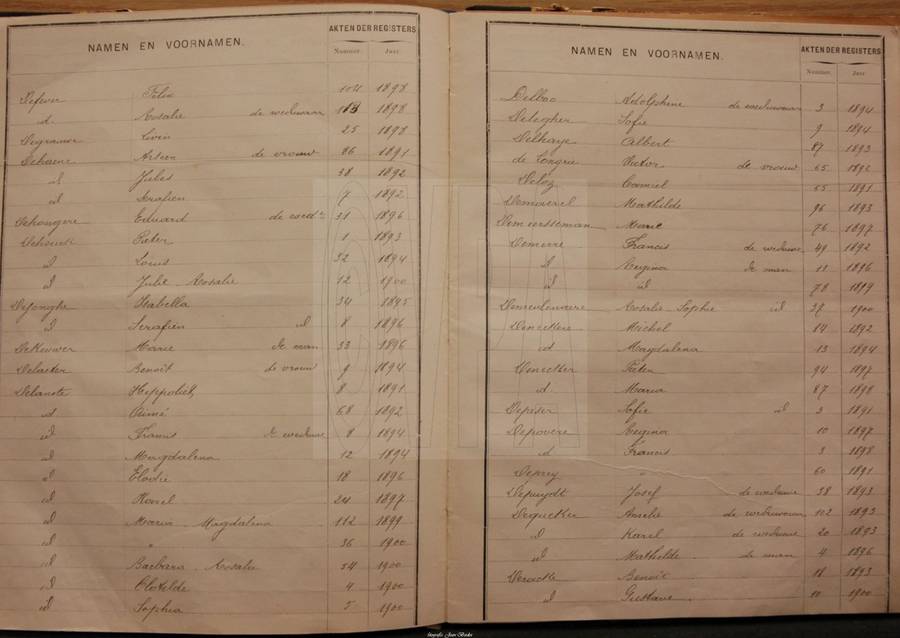 NAMEN EN VOORNAMEN. AKTEN DER REGISTERS
Nummer. Jaar.
Defever Felix 104 1898
id Rosalie de weduwaar 113 1898
Degrauwe Livin 25 1898
Dehaene Arteur de vrouw 86 1891
id Jules 38 1892
id Serafien 7 1892
Dehongere Eduard de wede 31 1896
Dehouck Pieter 1 1893
id Louis 32 1894
id Julie Rosalie 12 1900
Dejonghe Isabella 34 1895
id Serafien id 8 1896
DeKeuwer Marie de man 33 1896
Delaeter Benoit de vrouw 9 1894
Delanote Heppoliet 8 1891
id Aimé 68 1892
id Francis de weduwe 8 1894
id Magdalena 12 1894
id Elodie 18 1896
id Karel 24 1897
id Maria Magdalena 112 1899
id " 36 1900
id Barbara Rosalie 54 1900
id Clotilde 4 1900
id Sophia 5 1900
NAMEN EN VOORNAMEN. AKTEN DER REGISTERS
Nummer. Jaar.
Delbao Adolphine de weduwaar 3 1894
Delegher Sofie 9 1894
Delhaye Albert 87 1893
de Longrie Victor de vrouw 65 1892
Deloz Camiel 55 1891
Demaerel Mathilde 96 1893
Demeersseman Marie 76 1897
Demerre Francis de weduwe 49 1892
id Regina de man 11 1896
id id 78 1899
Demeulenaere Rosalie Sophie id 37 1900
Deneckere Michel 14 1892
id Magdalena 13 1894
Denecker Pieter 94 1897
id Maria 87 1898
Depester Sofie id 3 1891
Depovere Regina 10 1897
id Francis 3 1898
Deprey " 60 1891
Depuydt Josef de weduwe 38 1893
Dequeker Amelie de weduwaar 102 1893
id Karel de weduwe 20 1893
id Mathilde de man 4 1896
Deraedt Benoit 18 1893
id Gustave 10 1900